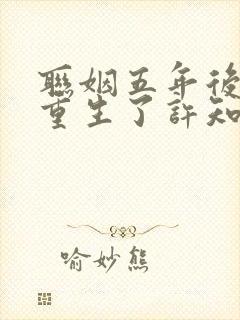 聯姻五年後
重生了許知
喻妙熊